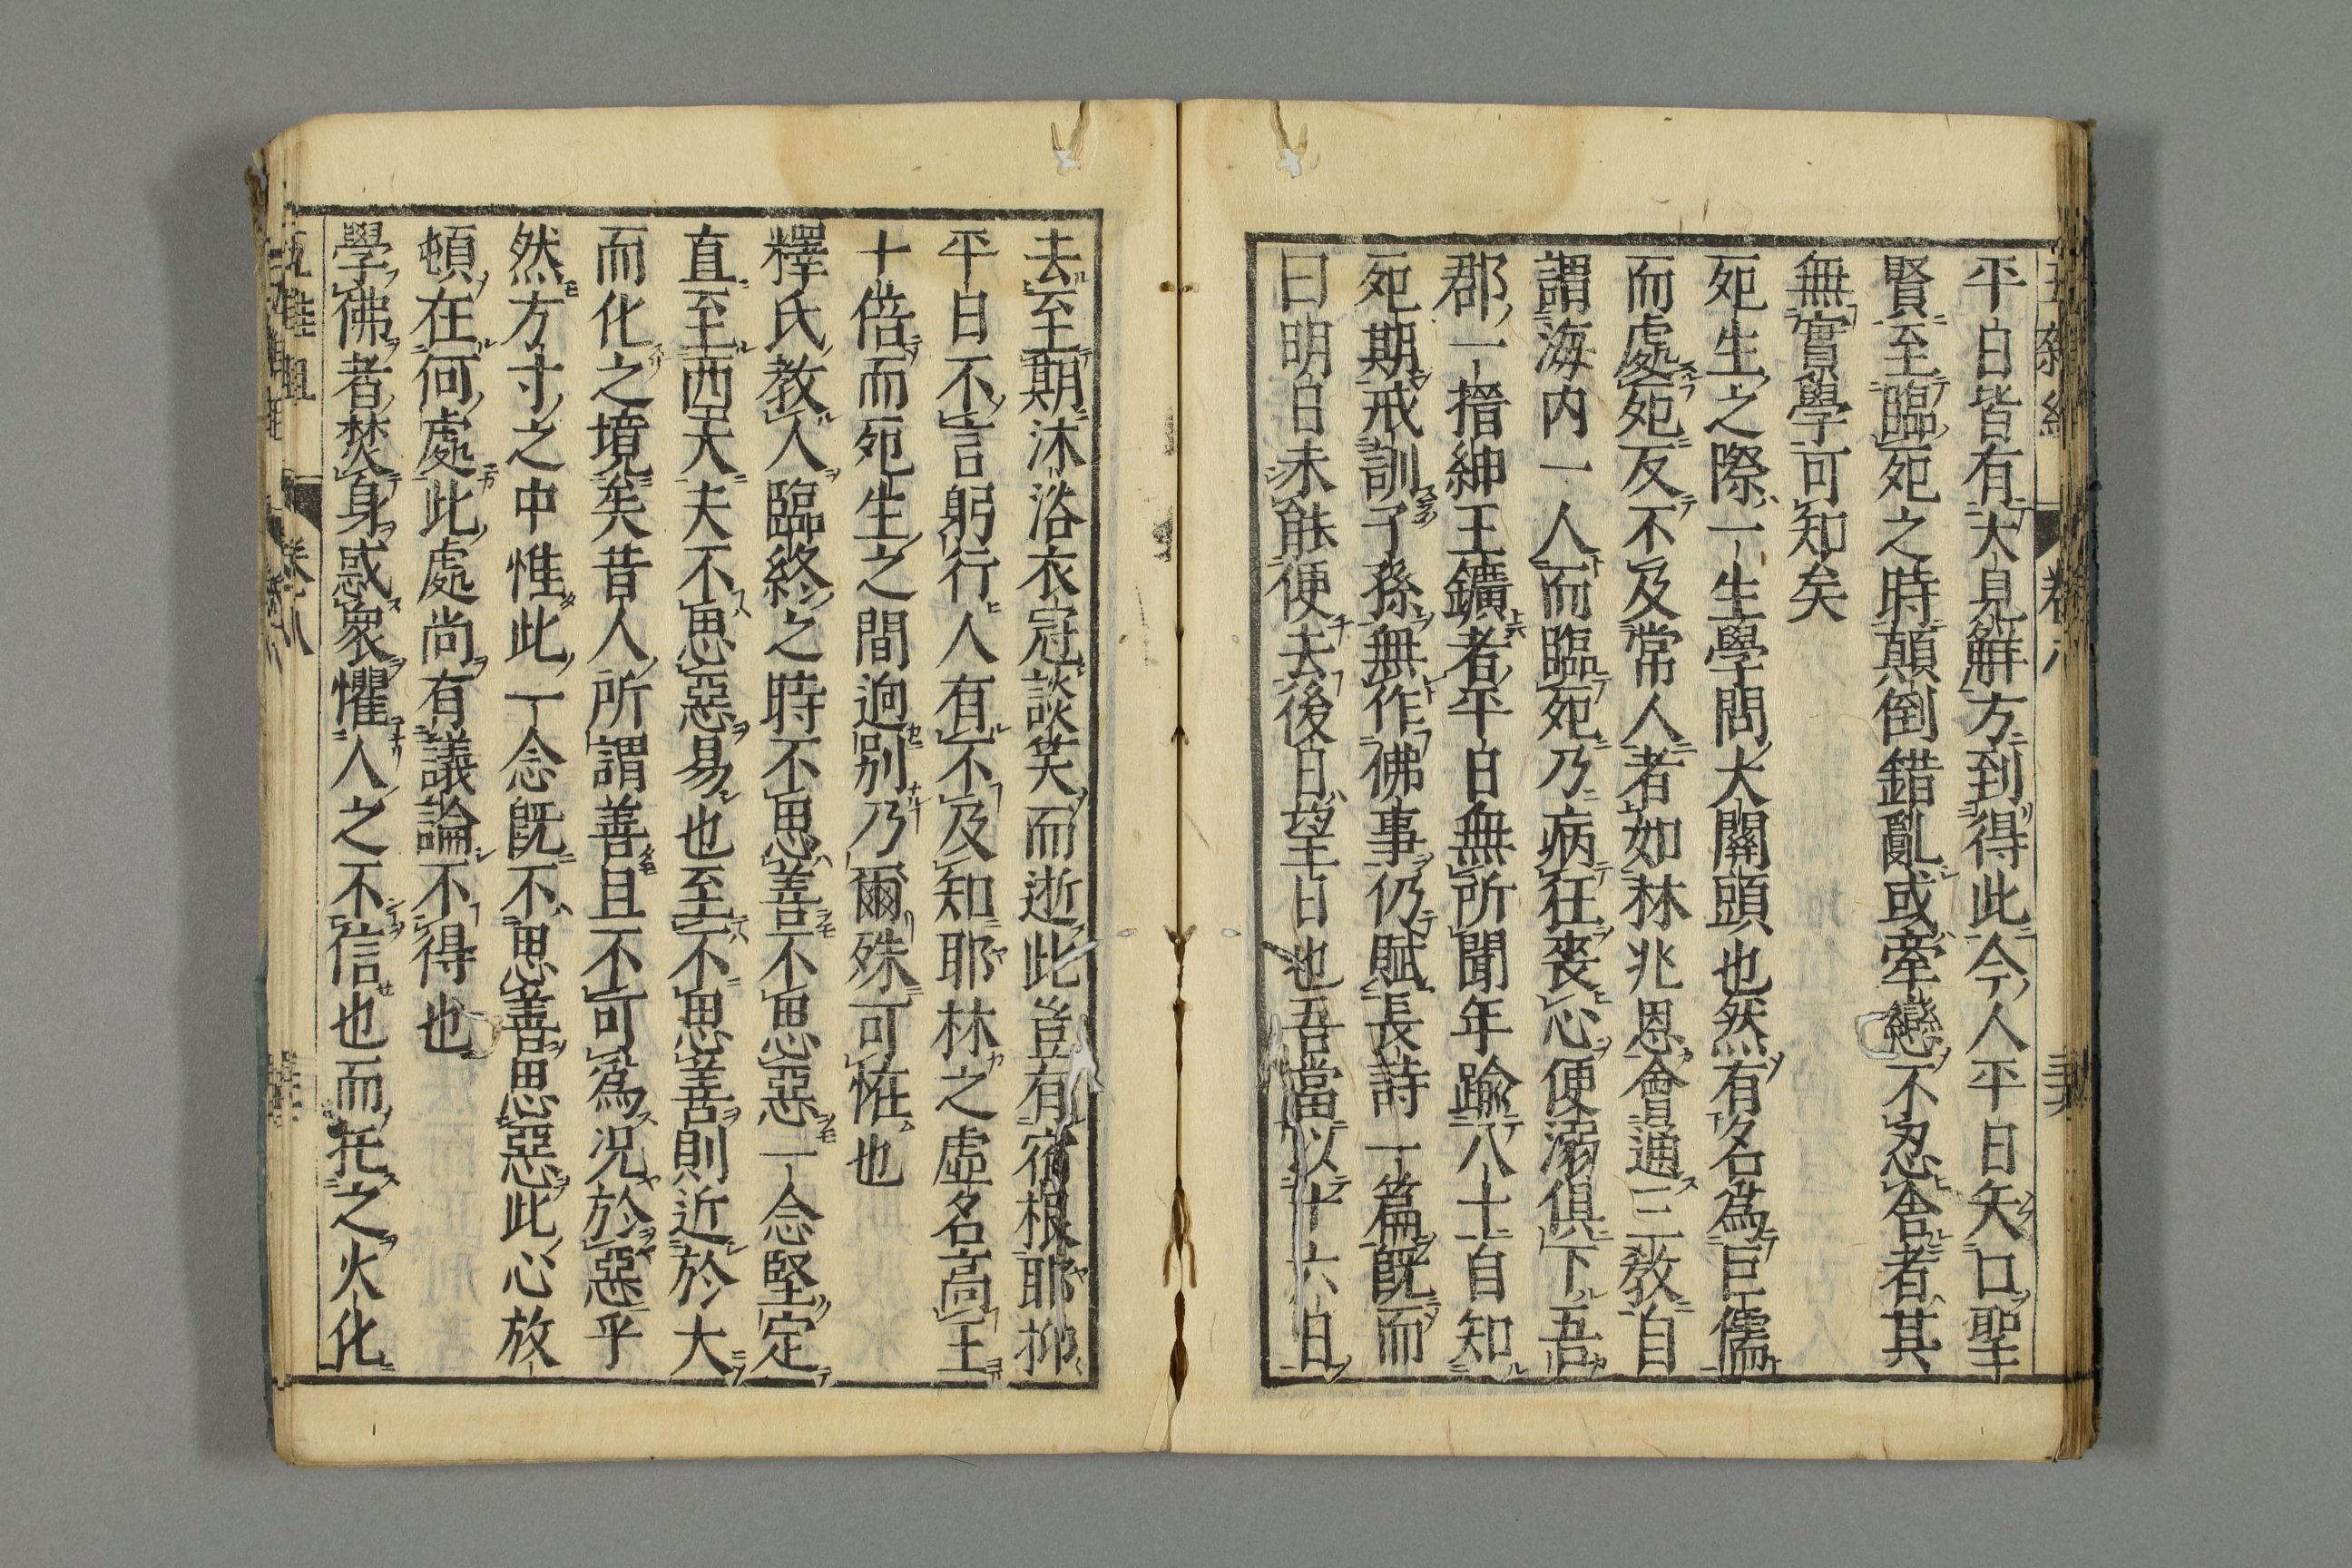 平日皆有大見解方到得此今人平日矢口聖
賢至臨死之時顛倒錯亂或牽戀不忍舍者其
無實學可知矣
死生之際一生學問大關頭也然有名為巨儒
而處死反不及常人者如林兆恩會通三教自
謂海内一人而臨死乃病狂喪心便溺俱下吾
郡一搢紳王鑛者平日無所聞年踰八十自知
死期戒訓子孫無作佛事仍賦長詩一篇既而
曰明日未能便去後日望日也吾當以十六日
去至期沐浴衣冠談笑而逝此豈有宿根耶抑
平日不言躬行人有不及知耶林之虛名高王
十倍而死生之間逈別乃爾殊可恠也
釋氏教人臨終之時不思善不思惡一念堅定
直至西天夫不思惡易也至不思善則近於大
而化之境矣昔人所謂善且不可為況於惡乎
然方寸之中惟此一念既不思善思惡此心放
頓在何處此處尚有議論不得也
學佛者焚身惑衆懼人之不信也而托之火化
五雜俎 卷八